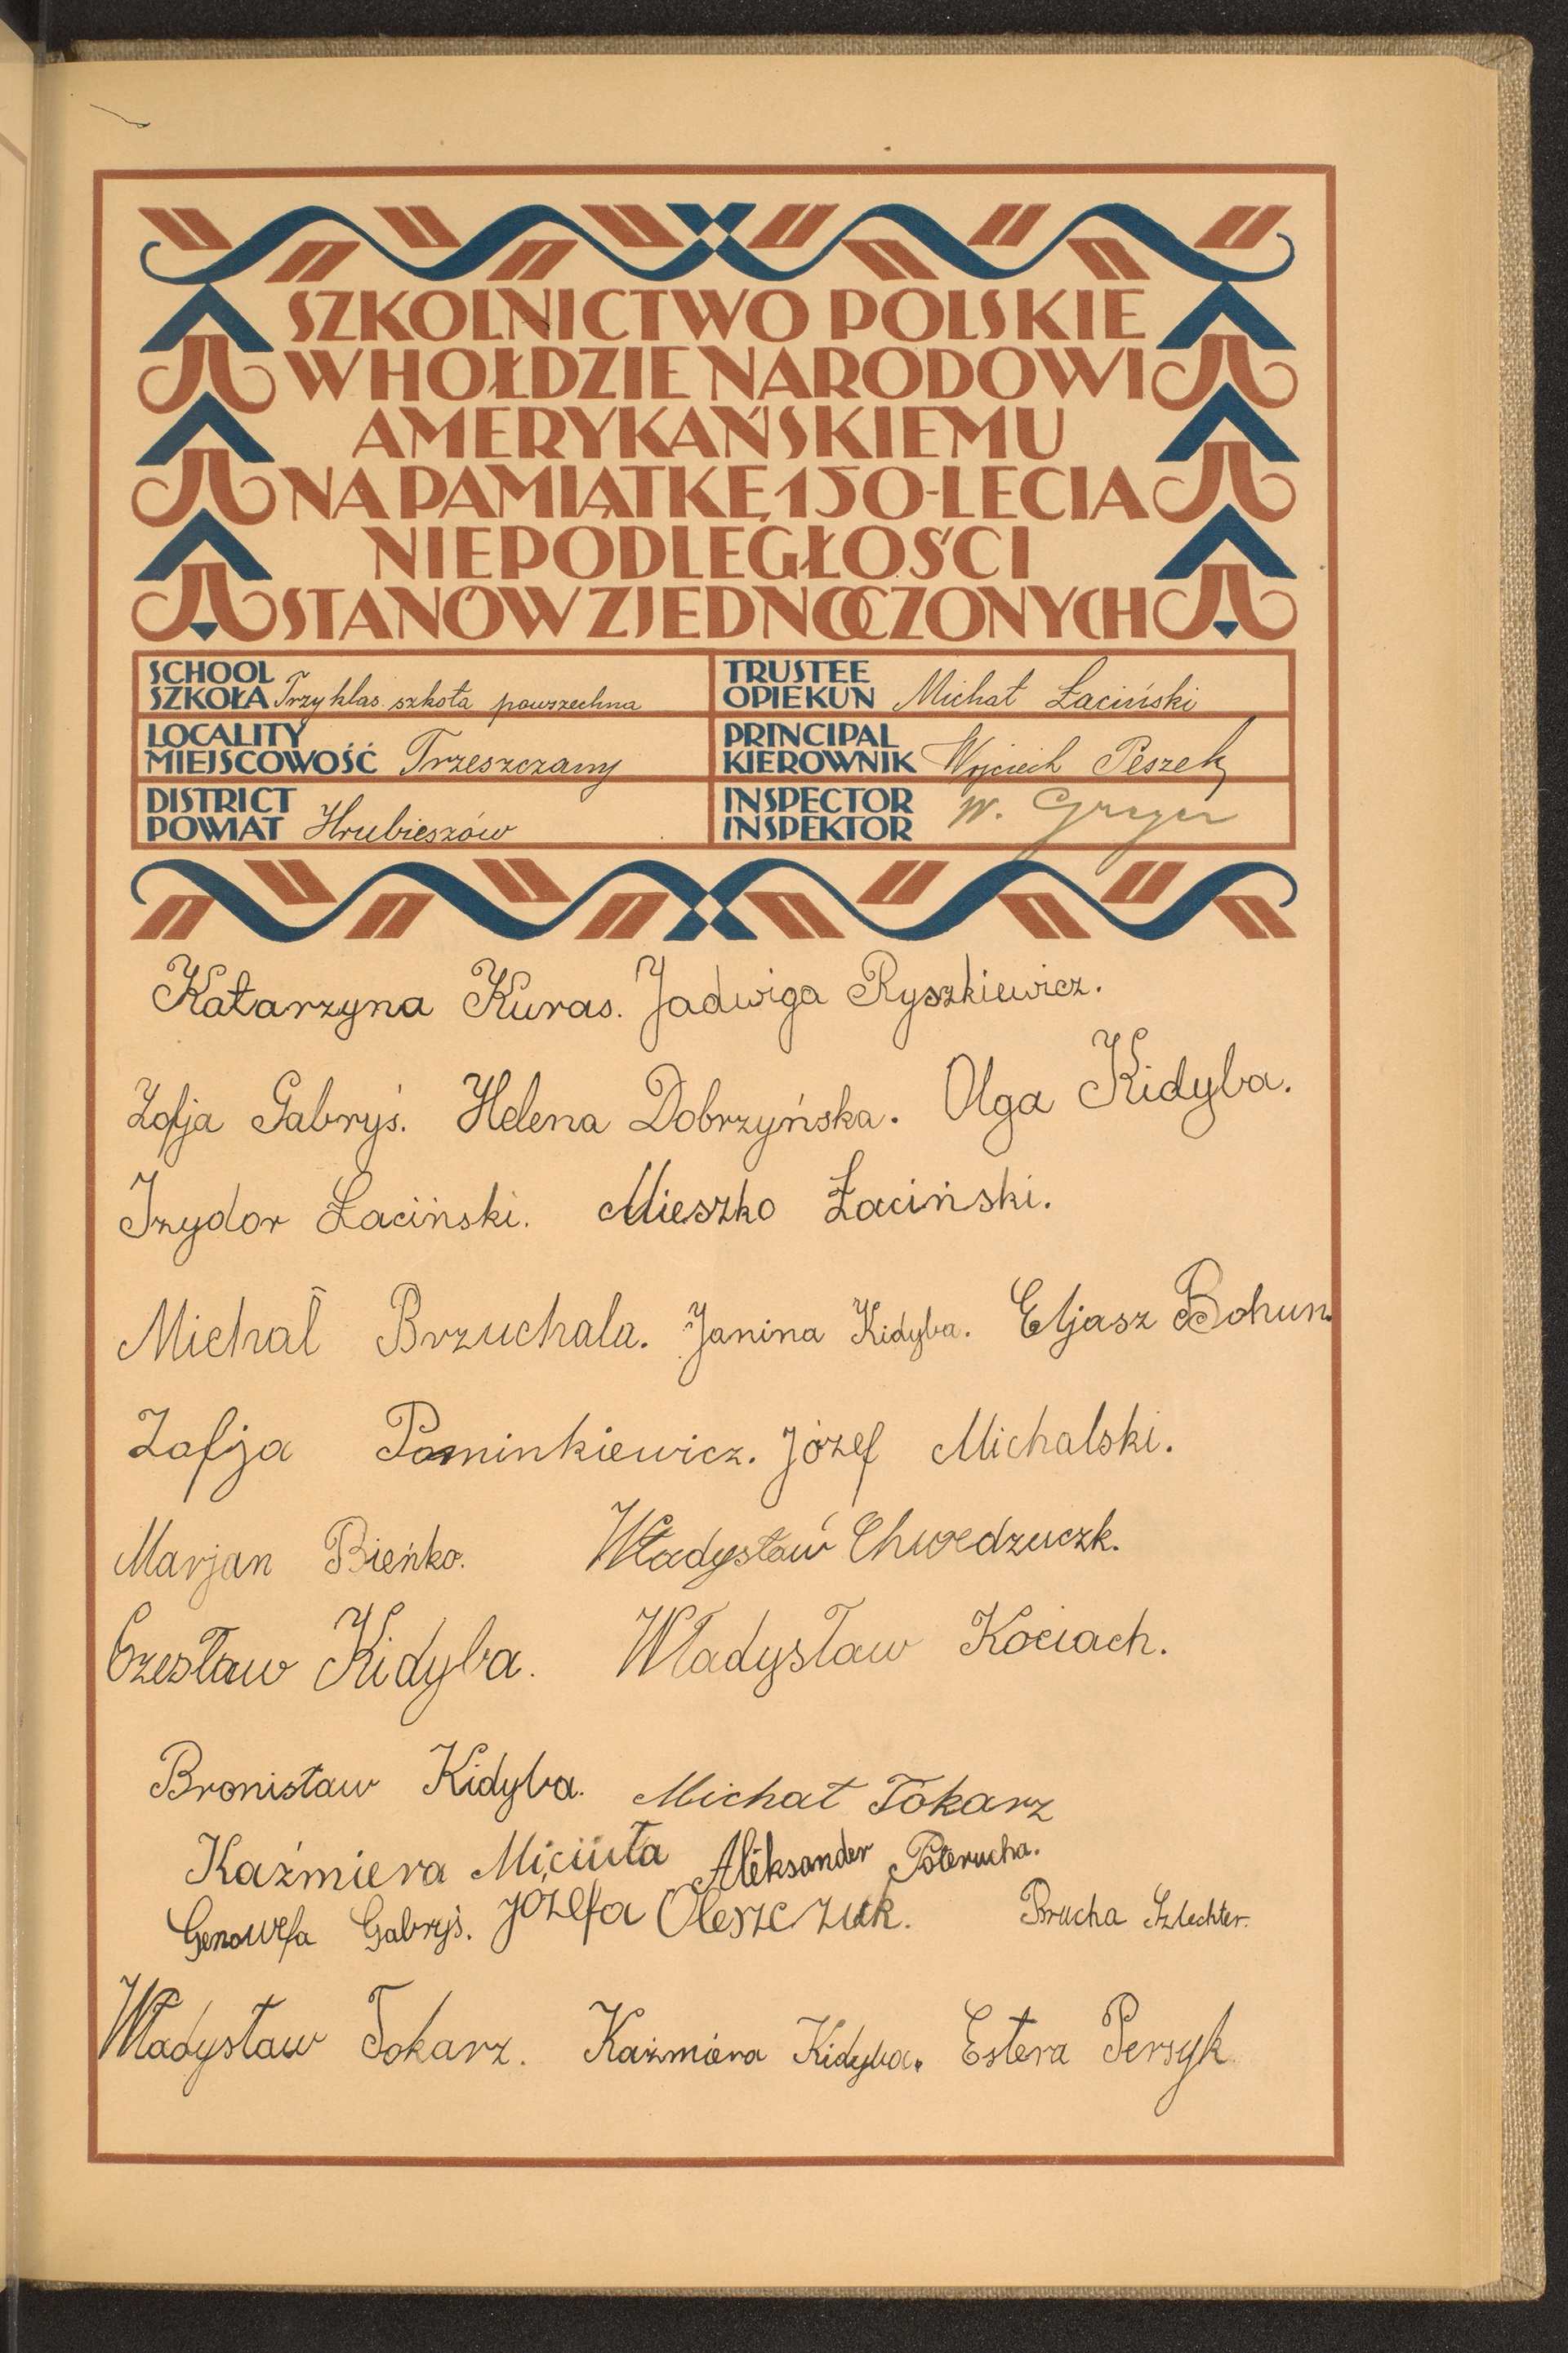 SZKOLNICTWO POLSKIE
W HOŁDZIE NARODOWI
AMERYKAŃSKIEMU
NA PAMIĄTKĘ 150-LECIA
NIEPODLEGŁOŚCI
STANÓW ZJEDNOCZONYCH
SCHOOL
SZKOŁA Trzyklas. szkoła powszechna
TRUSTEE
OPIEKUN Michał Łaciński
LOCALITY
MIEJSCOWOŚĆ Trzeszczany
PRINCIPAL
KIEROWNIK Wojciech Peszek
DISTRICT
POWIAT Hrubieszów
INSPECTOR
INSPEKTOR W.
Katarzyna Kuras. Jadwiga Ryszkiewicz.
Zofja Gabryś. Helena Dobrzyńska. Olga Kidyba.
Izydor Łaciński. Mieszko Łaciński.
Michał Brzuchala. Janina Kidyba. Eljasz Bohun.
Zofja Pominkiewicz. Józef Michalski.
Marjan Bieńko. Władysław Chwedzuczk.
Czesław Kidyba. Władysław Kociach.
Bronisław Kidyba. Michał Tokarz
Kaźmiera Miciuła Aleksander Poterucha.
Genowefa Gabryś. Józefa Oleszczuk. Brucha Szlechter.
Władysław Tokarz. Kaźmiera Kidyba. Estera Persyk